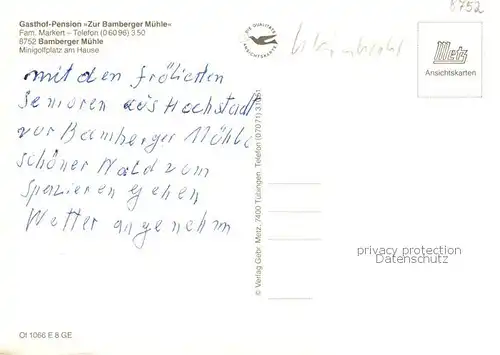 8752
Gasthof-Pension »Zur Bamberger Mühle«
Fam. Markert – Telefon (0 60 96) 3 50
8752 Bamberger Mühle
Minigolfplatz am Hause
DIE QUALITÄTS
ANSICHTSKARTE
Metz
Ansichtskarten
mit den frölichen
Senioren aus Hochstadt
zur Bamberger Mühle
schöner Wald zum
Spazieren gehen
Wetter angenehm
© Verlag Gebr. Metz, 7400 Tübingen, Telefon (07071)
privacy protection
Datenschutz
Ot 1066 E 8 GE